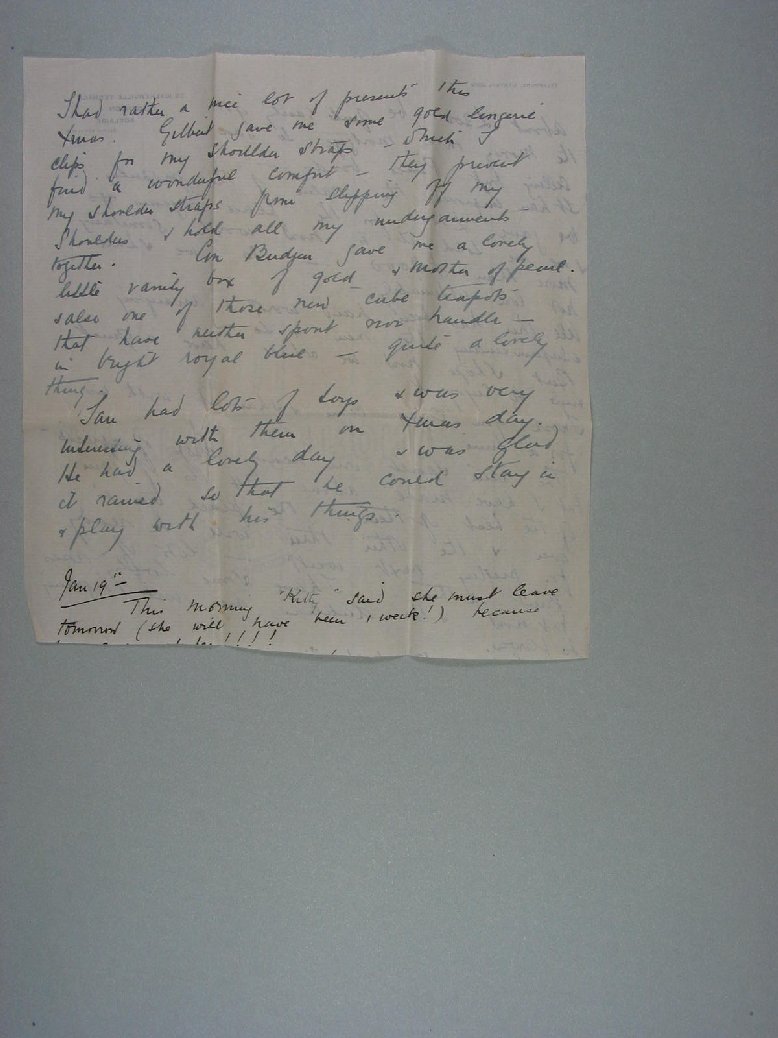 I had rather a nice lot of presents this
Xmas. Gilbert gave me some gold lingerie
clips for my shoulder straps which I
find a wonderful comfort – they prevent
my shoulder straps from slipping off my
shoulders & hold all my undergarments
together. Con Budgen gave me a lovely
little vanity box of gold & mother of pearl.
& also one of those new cube teapots
that have neither spout nor handle –
in bright royal blue – quite a lovely
thing.
Ian had lots of toys & was very
interesting with them on Xmas day.
He had a lovely day & was glad
it rained so that he could stay in
& play with his things.
Jan 19th
This morning "Kitty" said she must leave
tomorrow (she will have been 1 week!) because